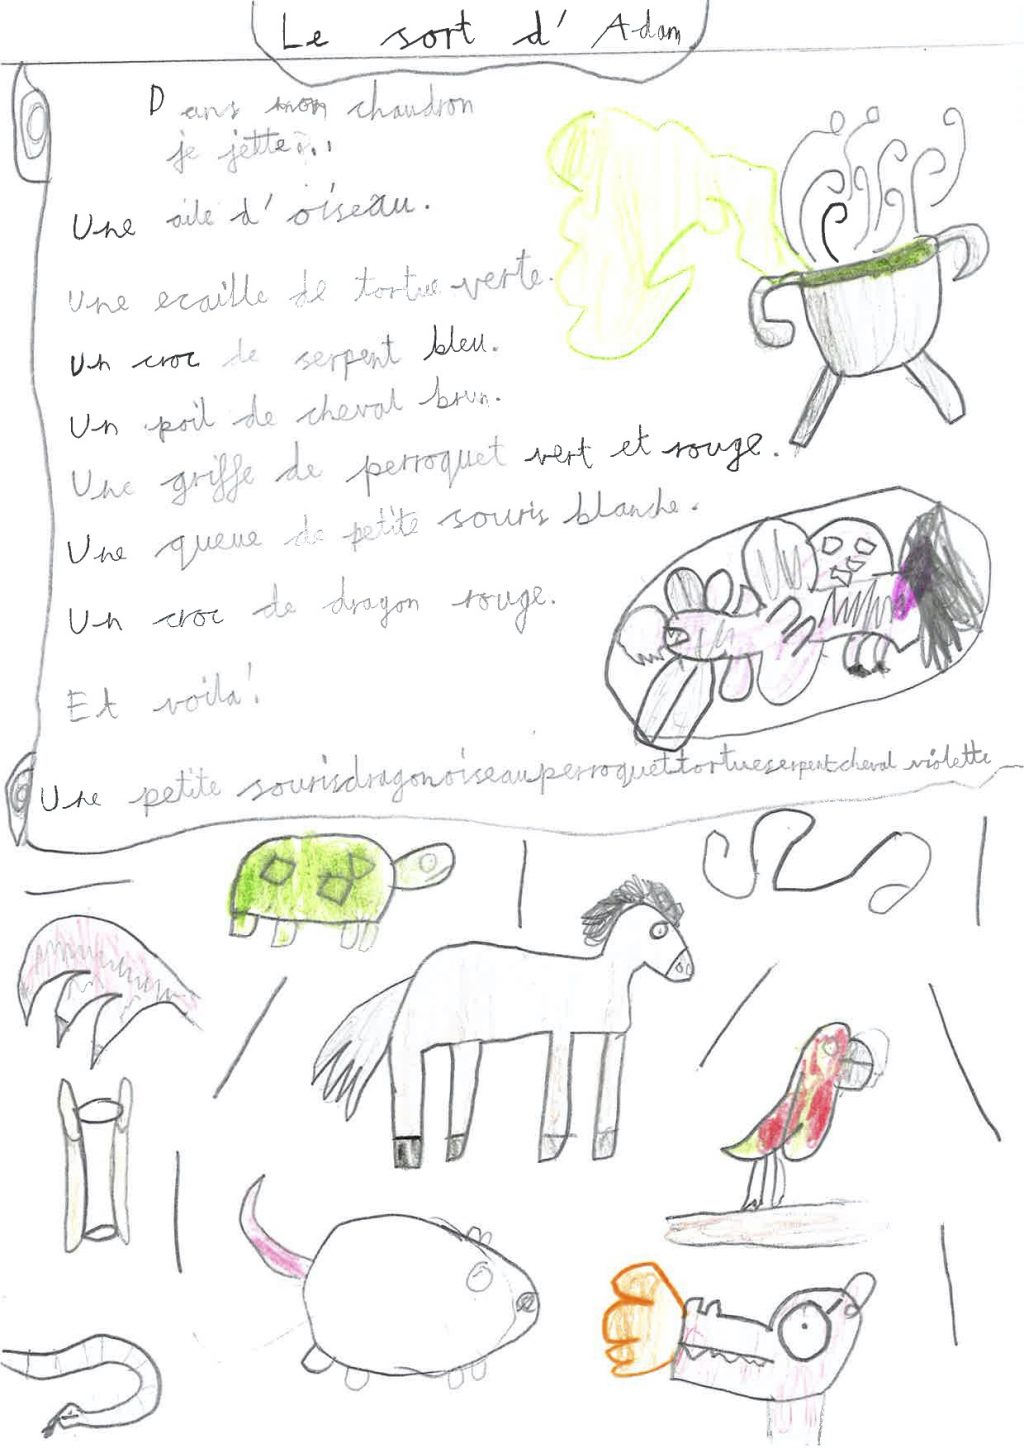 Le sort d'Adam
Dans mon chaudron
je jette...
Une aile d'oiseau.
Une ecaille de tortue verte.
Un croc de serpent bleu.
Un poil de cheval brun.
Une griffe de perroquet vert et rouge.
Une queue de petite souris blanche.
Un croc de dragon rouge.
Et voila!
Une petite sourisdragonoiseauperroquettortueserpentcheval violette